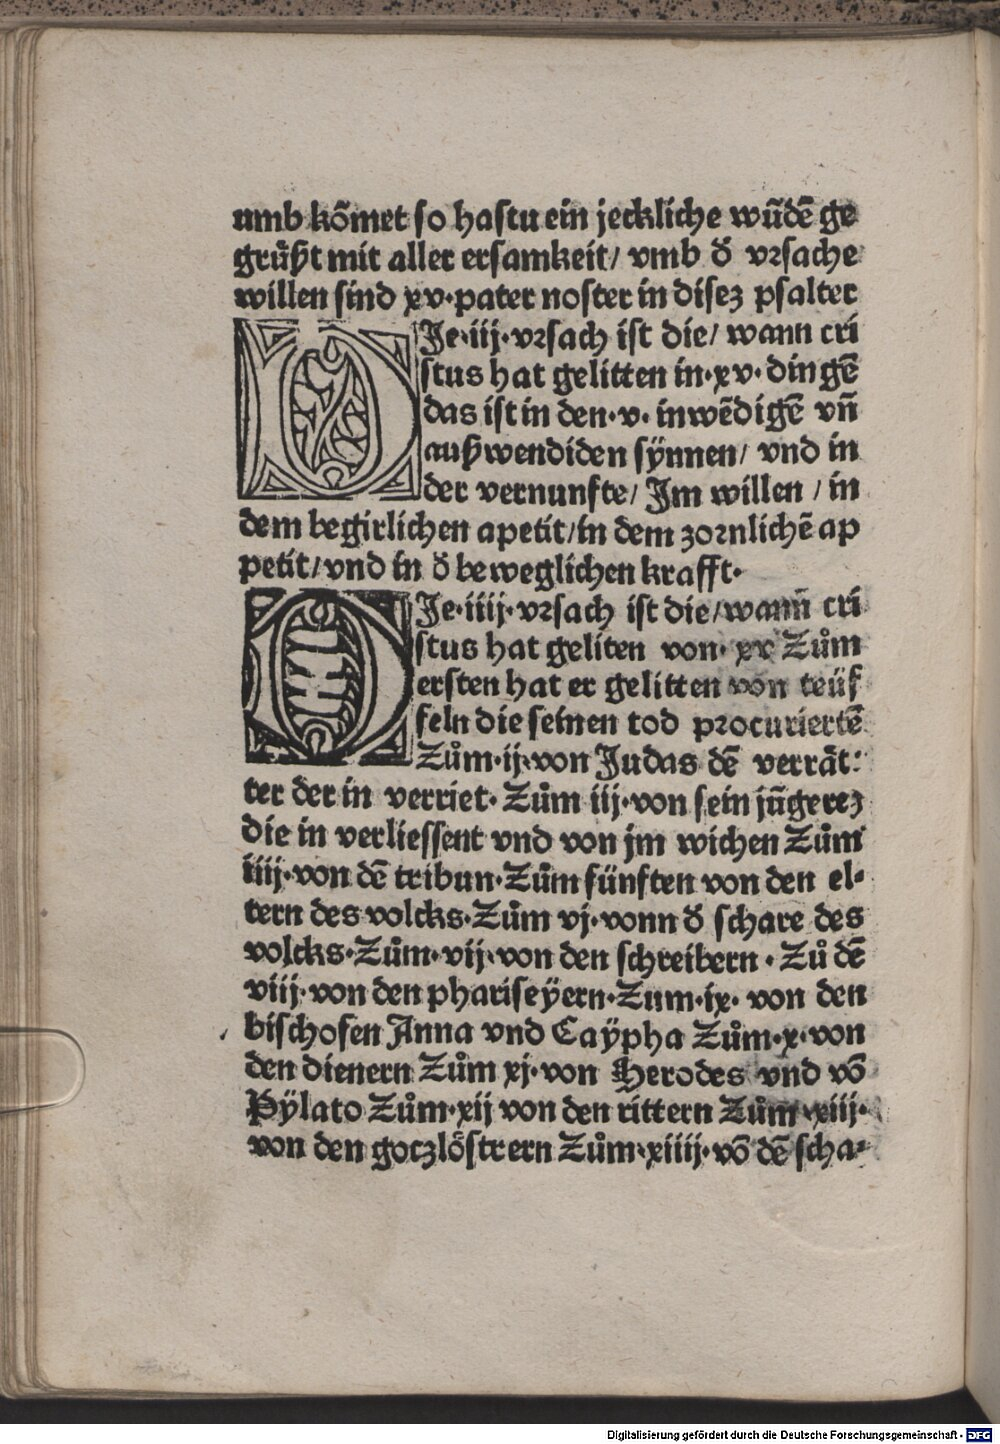 umb kõmet so hastu ein jeckliche wũdẽ ge
grůßt mit aller ersamkeit/ vmb d̄ vrsache
willen sind xv·pater noster in disez psalter
DJe·iij·vrsach ist die/ wann cri
stus hat gelitten in·xv·dingẽ
das ist in den·v·inwẽdigẽ vñ
außwendiden sÿnnen/ vnd in
der vernunfte/ Jm willen / in
dem begirlichen apetit/in dem zornlichẽ ap
petit/vnd in d̄ beweglichen krafft·
DJe·iiij·vrsach ist die/wann̄ cri
stus hat geliten von·xv Zům
ersten hat er gelitten von teüf
feln die seinen tod procuriertẽ
Zům·ij·von Judas dẽ verrät:
ter der in verriet·Zům iij·von sein jũgerez
die in verliessent vnd von jm wichen Zům
iiij·von dẽ tribun·Zům fünften von den el-
tern des volcks·Zům vj·vonn d̄ schare des
volcks·Zům·vij·von den schreibern·Zů dẽ
viij·von den phariseÿern·Zum·ix·von den
bischofen Anna vnd Caÿpha Zům·x·von
den dienern Zům xj·von Herodes vnd võ
Pÿlato Zům·xij von den rittern Zům·xiij·
von den goczlöstrern Zům·xiiij·võ dẽ scha-
Digitalisierung gefördert durch die Deutsche Forschungsgemeinschaft - DFG